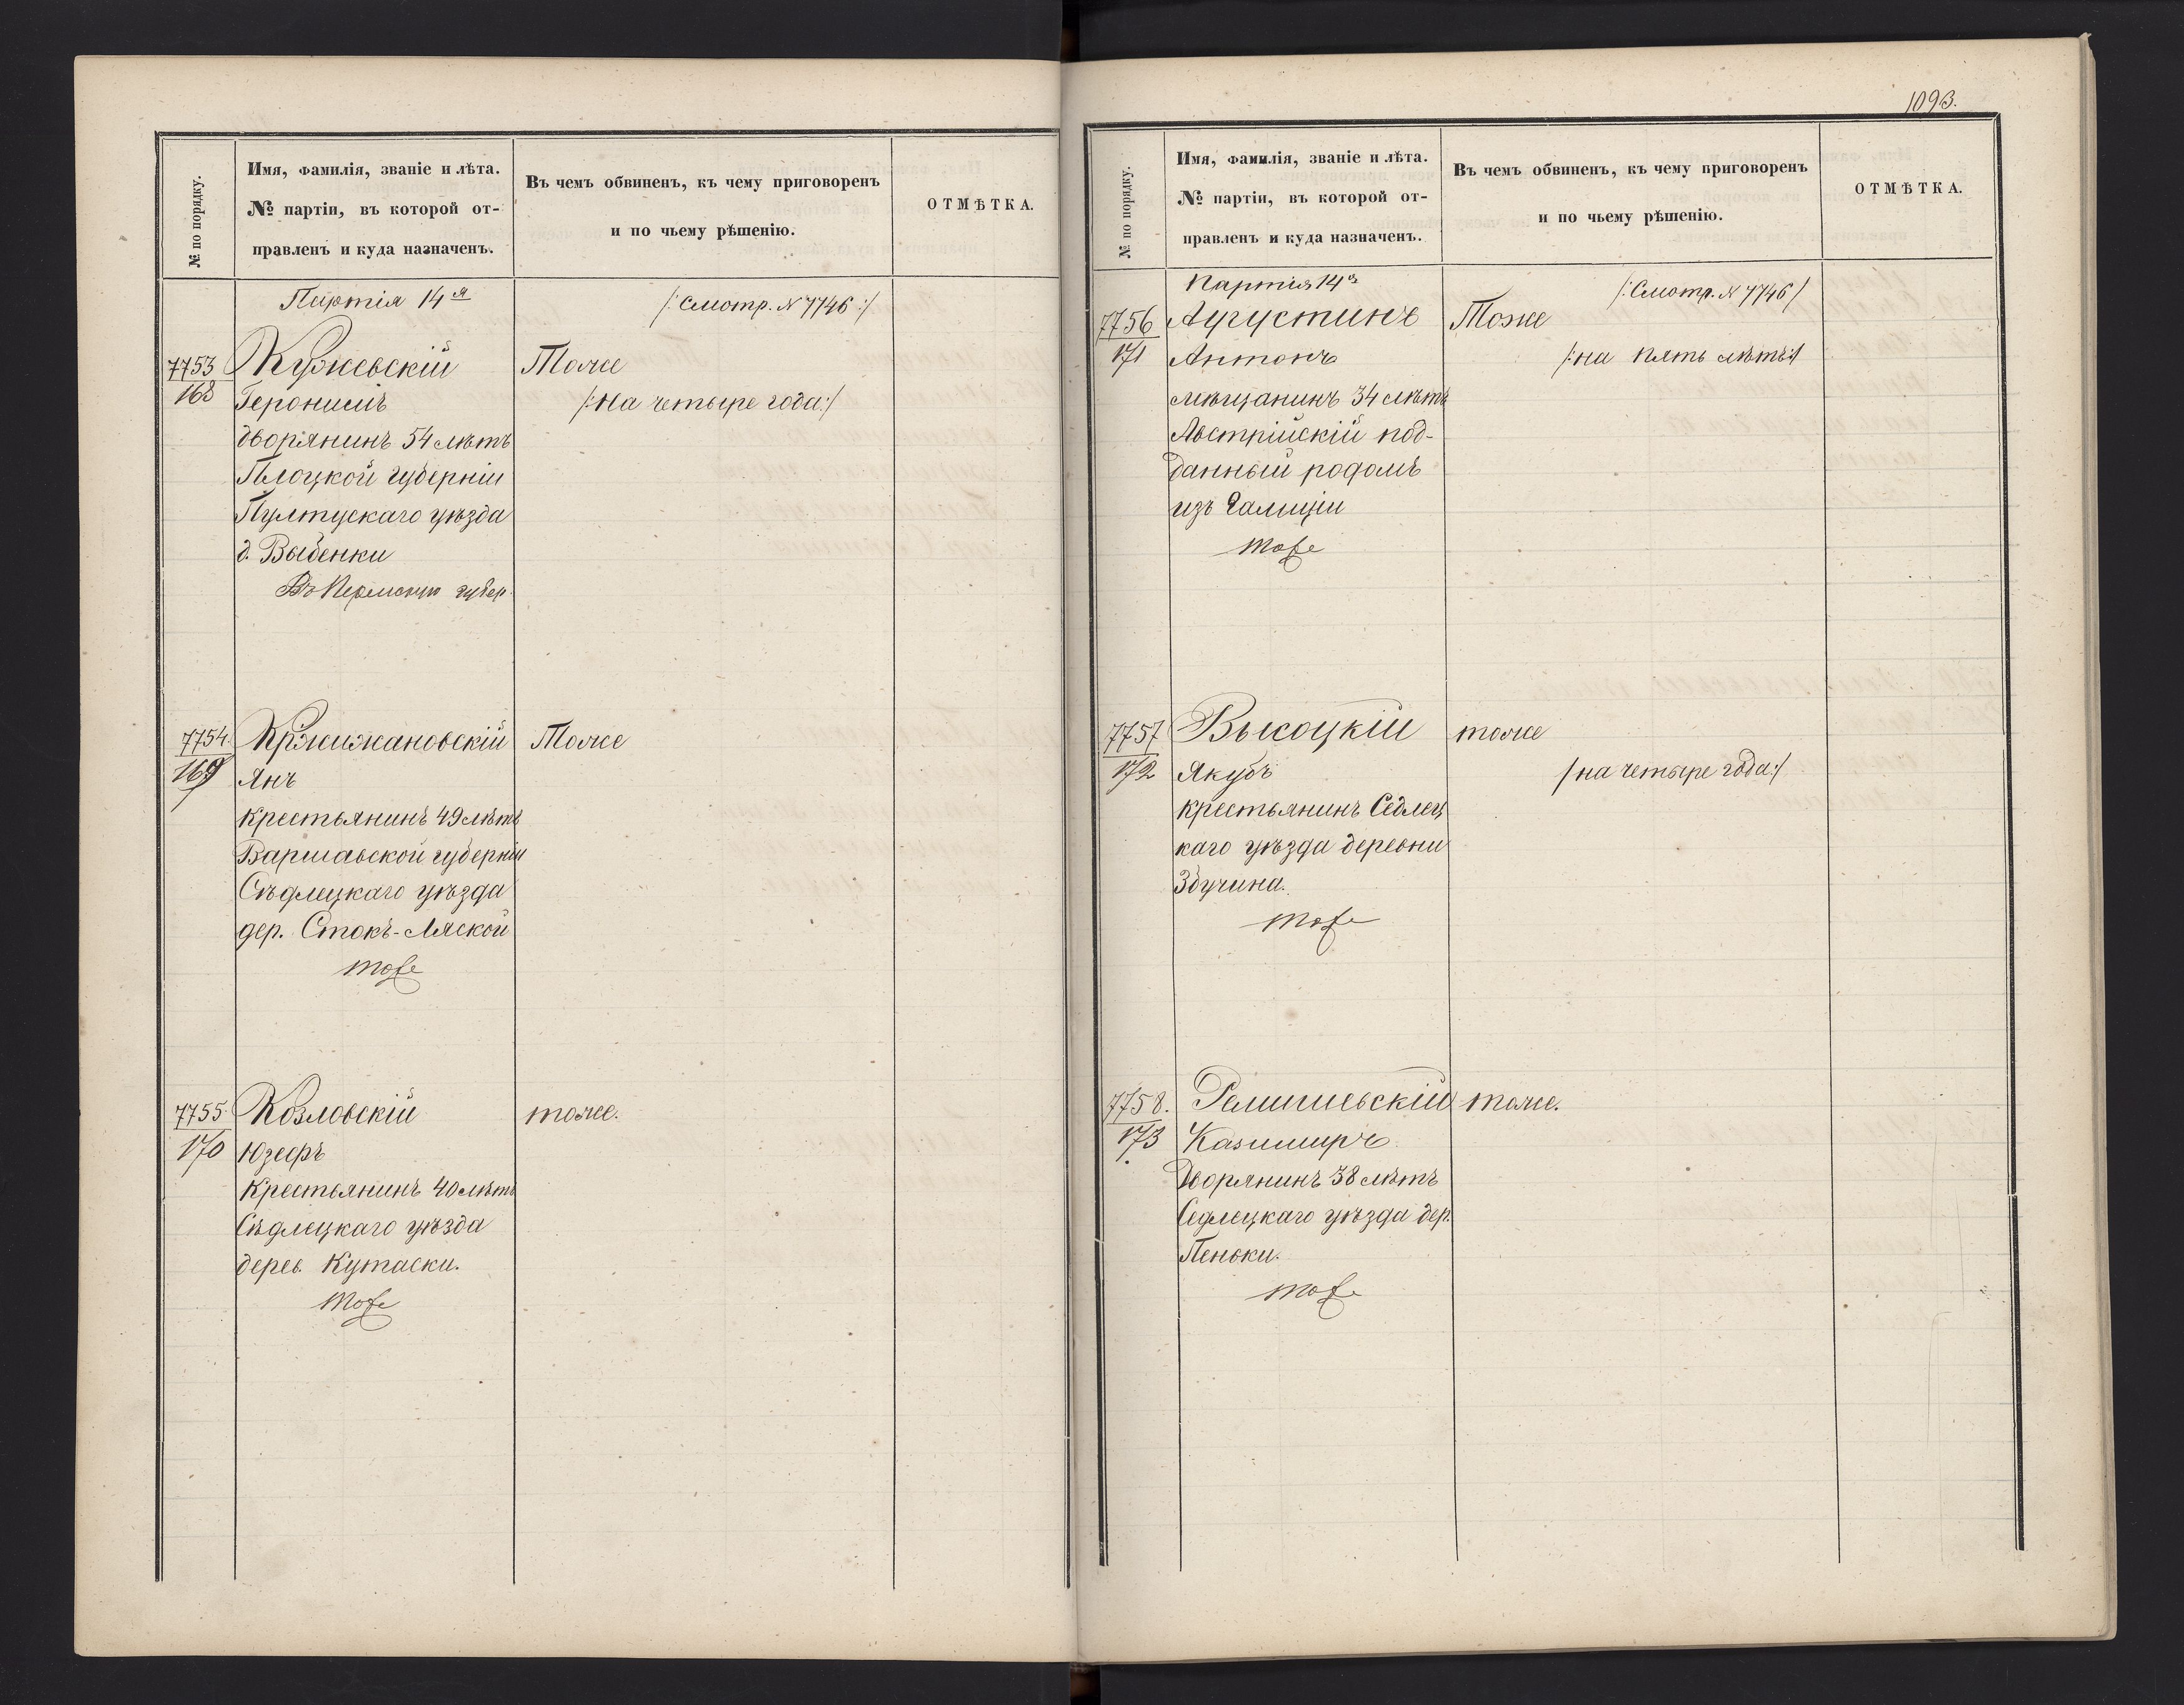 № по порядку.
Имя, фамилія, званіе и лѣта.
№ партіи, въ которой от-
правленъ и куда назначенъ.
Въ чемъ обвиненъ, къ чему приговоренъ
и по чьему рѣшенію.
ОТМѢТКА.
Партія 14я
/:Смотр. N 7746:/
7753
168
Кужевскій
Тоже
Геронимъ
/:на четыре года:/
дворянинъ 54 лѣтъ
Плоцкой губерніи
Пултускаго уѣзда
д. Выденки
Въ Пермскую губер.
7754.
169
Кржижановскій
Тоже
Янъ
крестьянинъ 49 лѣтъ
Варшавской губерніи
Сѣдлецкаго уѣзда
дер. Стокъ-Ляской
тоже
7755.
170
Козловскій
тоже.
Юзефъ
Крестьянинъ 40 лѣтъ
Сѣдлецкаго уѣзда
дерев. Кутаски.
тоже
1093.
№ по порядку.
Имя, фамилія, званіе и лѣта.
№ партіи, въ которой от-
правленъ и куда назначенъ.
Въ чемъ обвиненъ, къ чему приговоренъ
и по чьему рѣшенію.
ОТМѢТКА.
Партія 14я
/:Смотр. N 7746/
7756
171
Аугустинъ
Тоже
Антонъ
/:на пять лѣтъ:/
мѣщанинъ 34 лѣтъ
Австрійскій под-
данный родомъ
изъ Галиціи
тоже
7757
172
Высоцкій
тоже
Якубъ
/на четыре года:/
крестьянинъ Седлец
каго уѣзда деревни
Збучина.
тоже
7758.
173
тоже.
Казимиръ
Дворянинъ 38 лѣтъ
Седлецкаго уѣзда дер.
Пеньки.
тоже